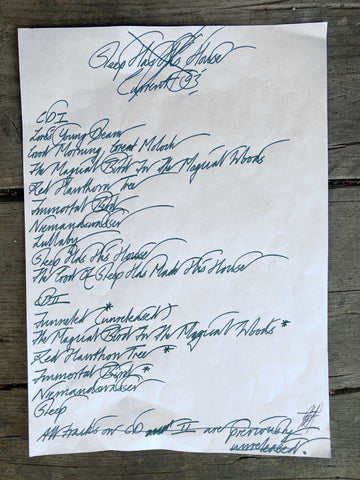 Sleep Has His House
Current 93
CD I
Love's Young Dream
Good Morning, Great Moloch
The Magical Bird In The Magical Woods
Red Hawthorn Tree
Immortal Bird
Niemandswasser
Lullaby
Sleep Has His House
The God Of Sleep Has Made His House
CD II
(unreleased)
The Magical Bird In The Magical Woods *
Red Hawthorn Tree *
Immortal Bird *
Niemandswasser
Sleep
All tracks on CD II are previously
unreleased.